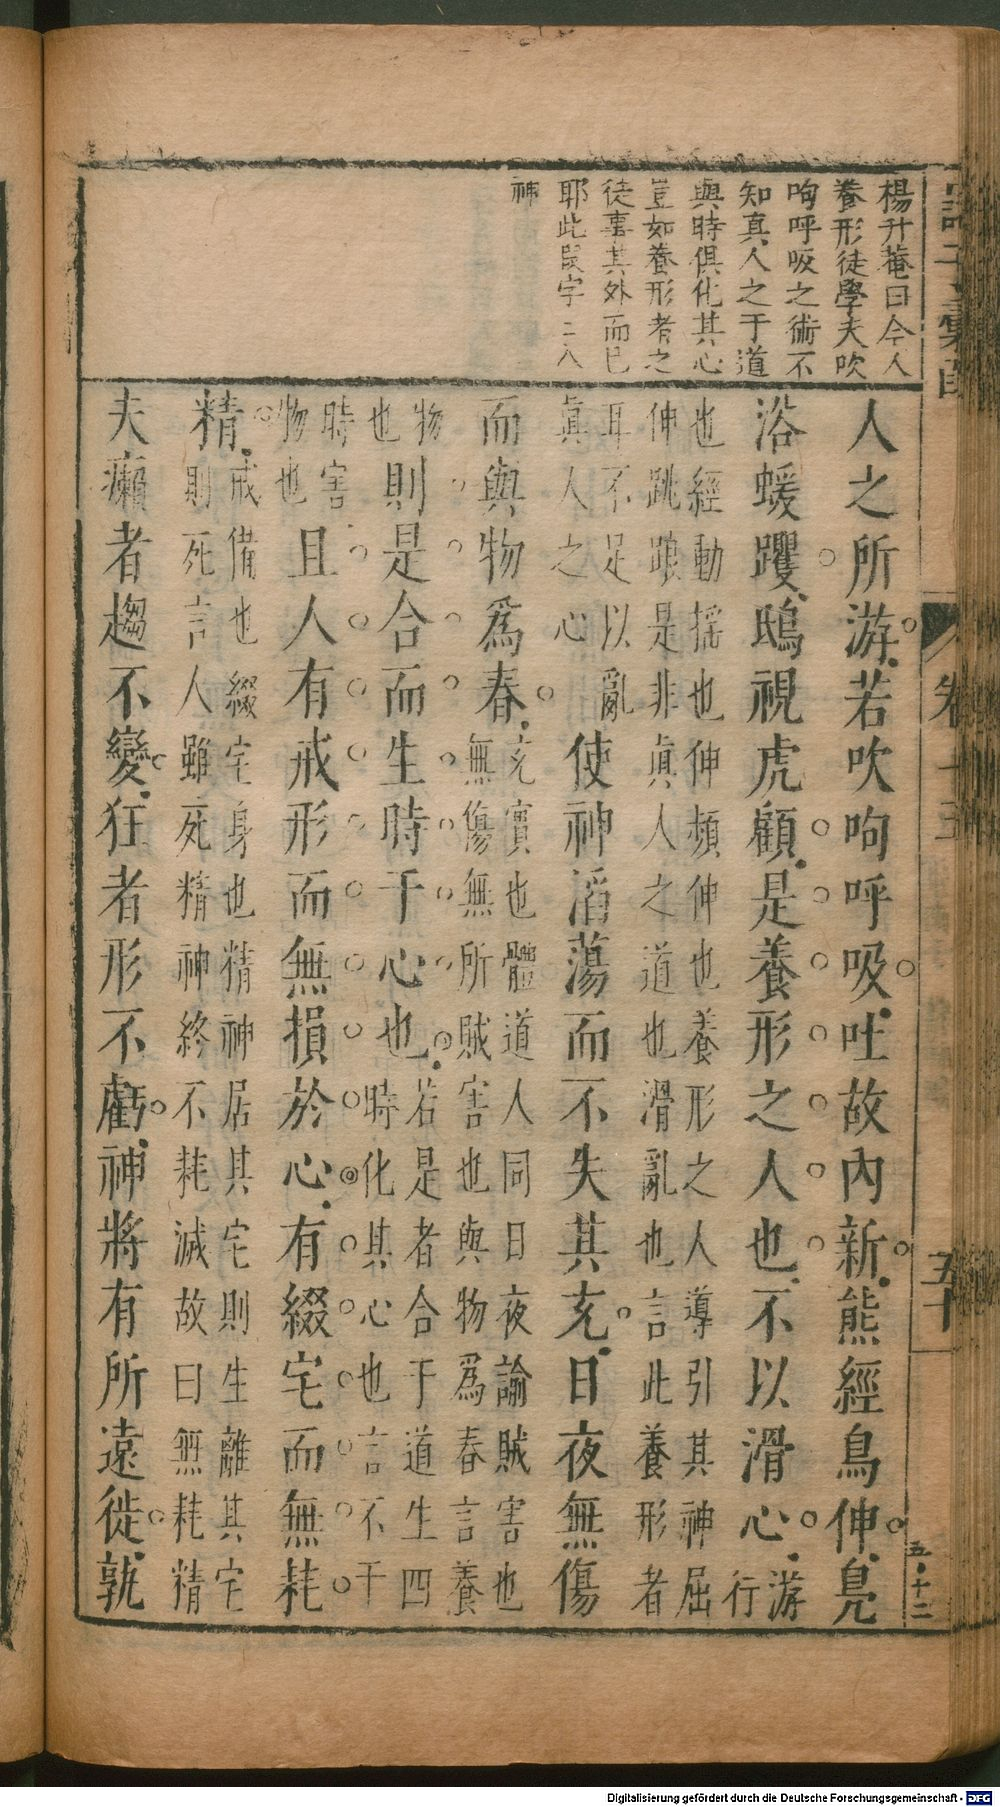 楊升菴曰今人
養形徒學夫吹
呴呼吸之術不
知真人之于道
與時俱化其心
豈如養形者之
徒事其外而已
耶此段字二八
神
人之所游若吹呴呼吸吐故內新熊經鳥伸鳧
浴蝯躩鴟視虎顧是養形之人也不以滑心游行
也經動搖也伸頻伸也養形之人導引其神屈
伸跳踉是非眞人之道也滑亂也言此養形者
耳不足以亂
眞人之心
使神滔蕩而不失其充日夜無傷
而與物爲春
充實也體道人同日夜諭賊害也
無傷無所賊害也與物爲春言養
物
也
則是合而生時于心也
若是者合于道生四
時化其心也言不干
時害
物也
且人有戒形而無損於心有綴宅而無耗
精
戒備也綴宅身也精神居其宅則生離其宅
則死言人雖死精神終不耗滅故曰無耗精
夫癩者趨不變狂者形不虧神將有所遠徙孰
卷十五
五十
五十二
Digitalisierung gefördert durch die Deutsche Forschungsgemeinschaft - DFG